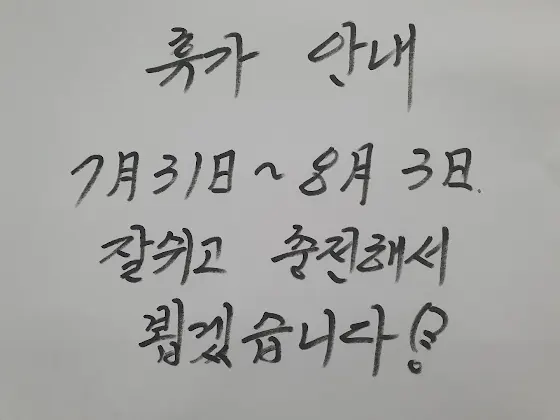 휴가 안내
7月31日~8月 3日.
잘쉬고 충전해서
뵙겠습니다!